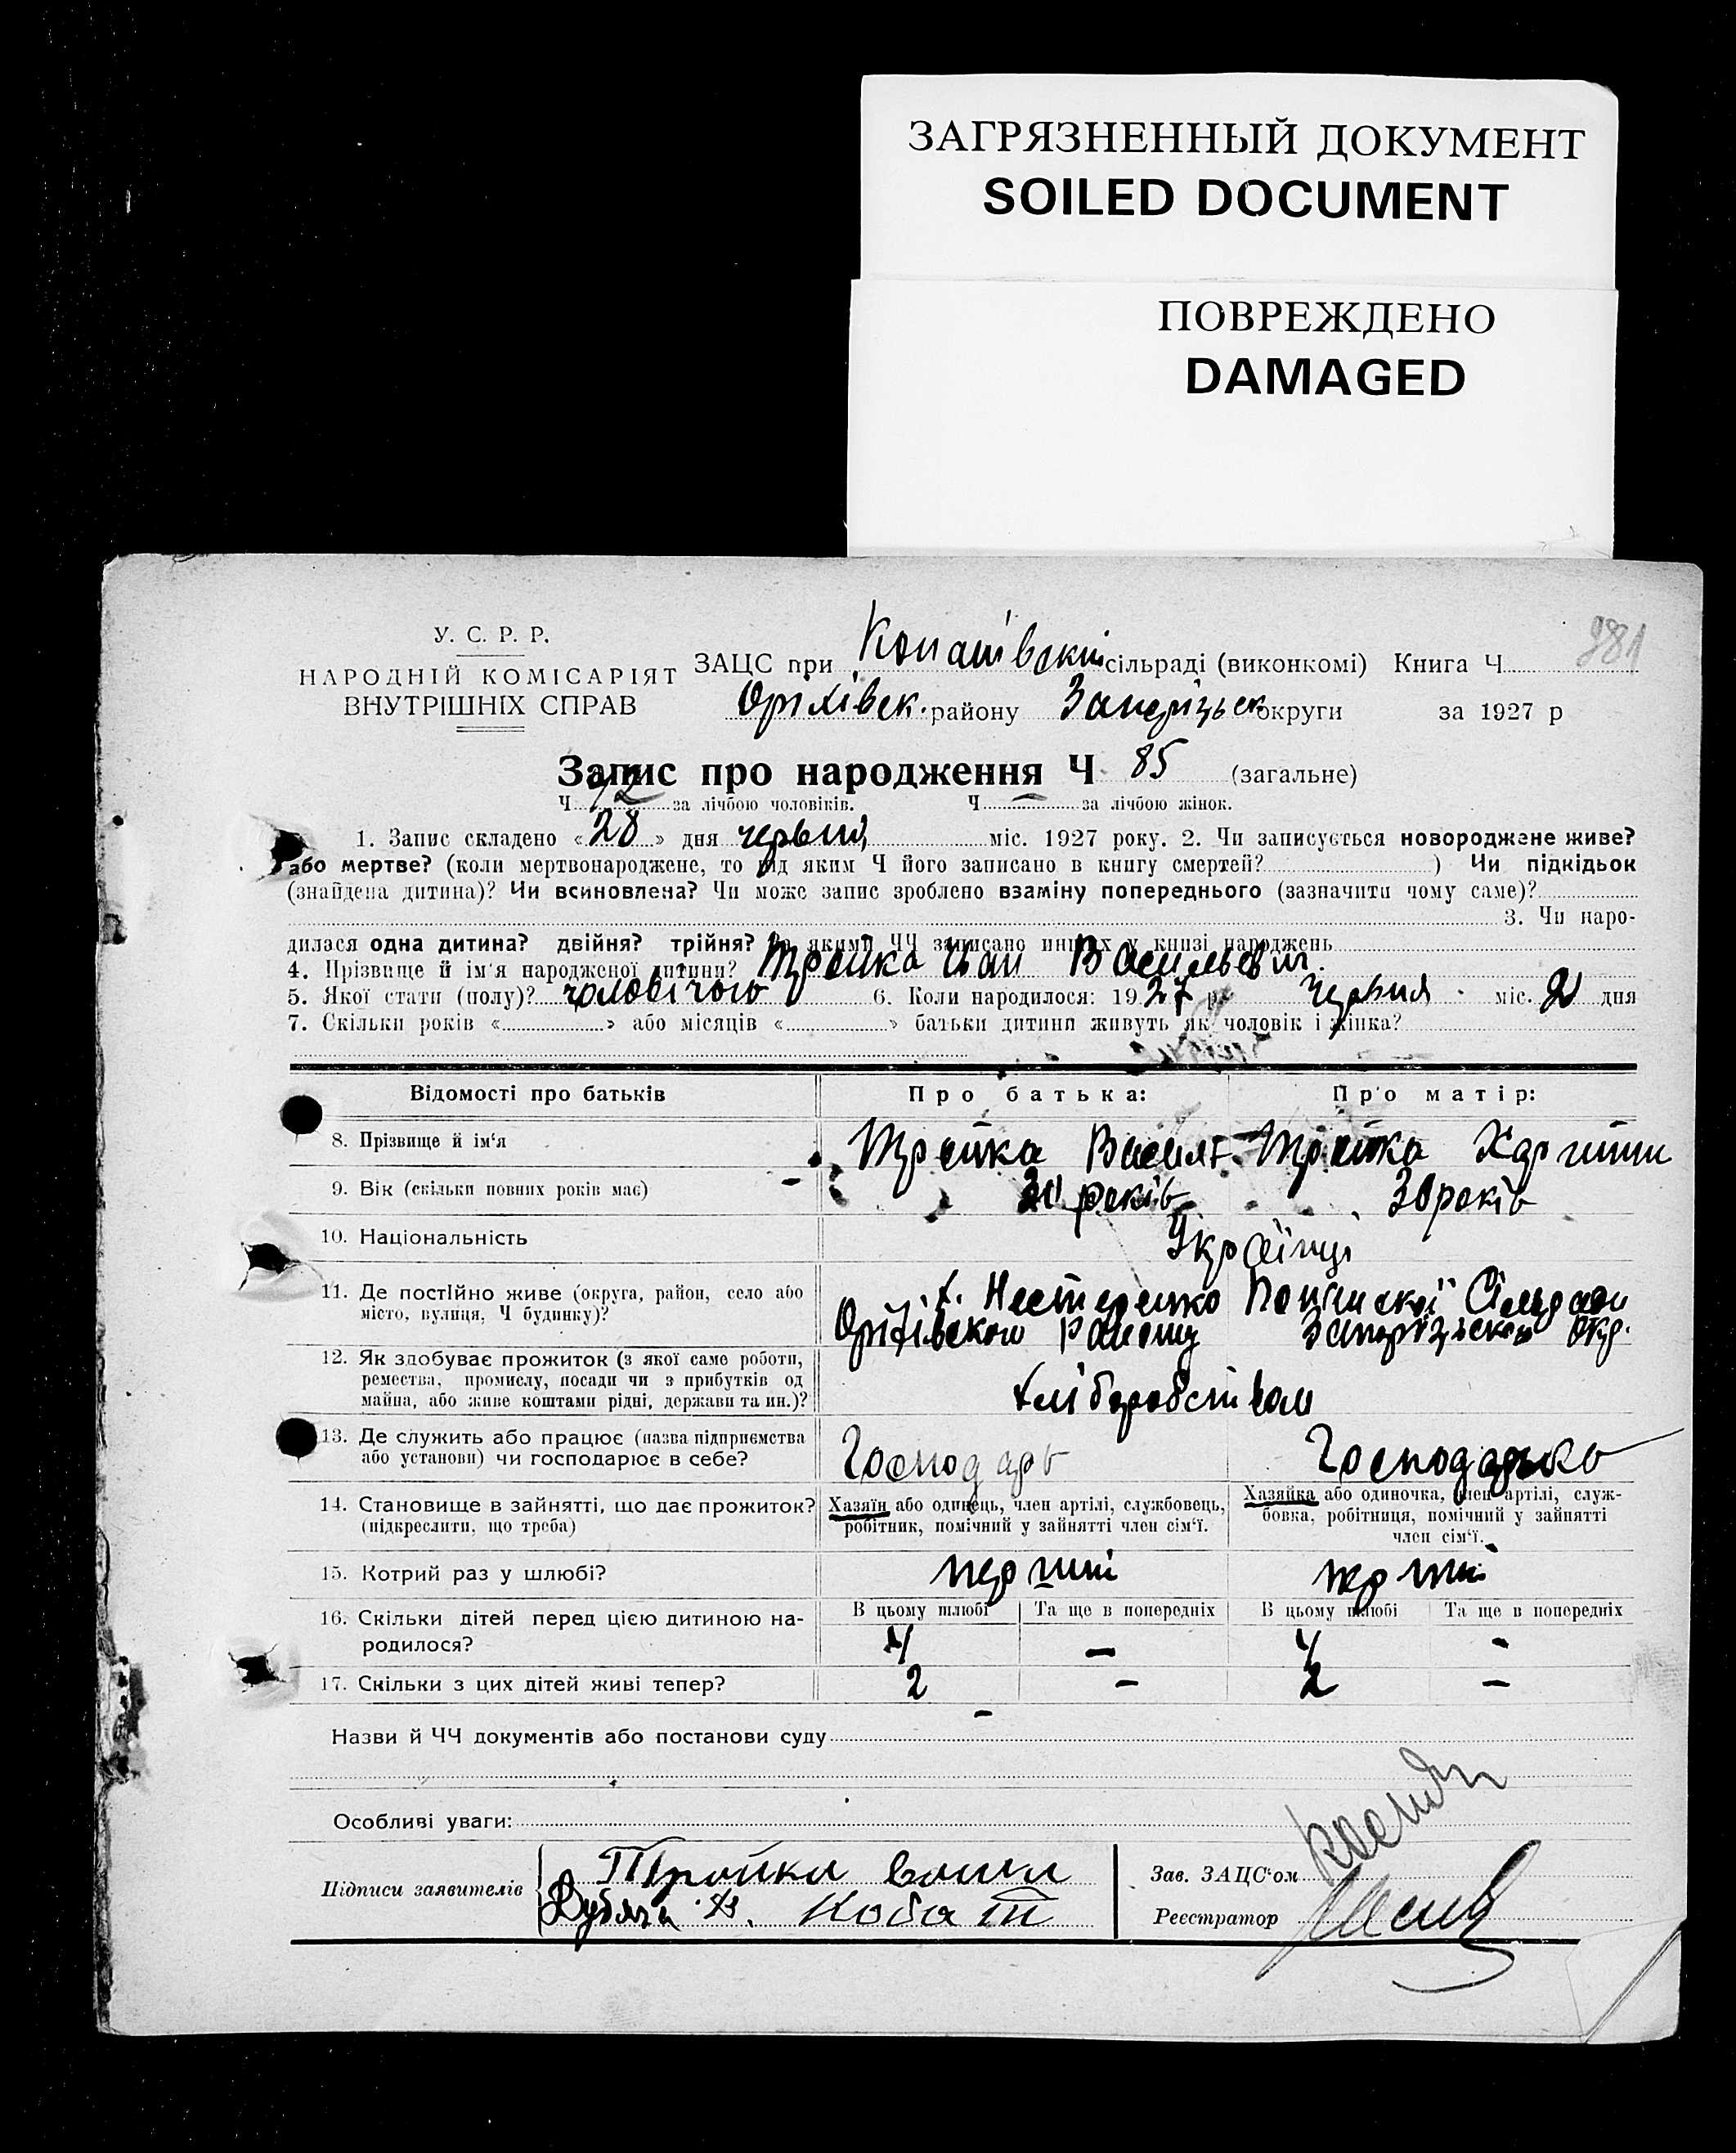 ЗАГРЯЗНЕННЫЙ ДОКУМЕНТ
SOILED DOCUMENT
ПОВРЕЖДЕНО
DAMAGED
У. С. Р. Р.
НАРОДНІЙ КОМІСАРІЯТ
ВНУТРІШНІХ СПРАВ
ЗАЦС при сільраді (виконкомі) Книга Ч 281
Оріхівськ. району Запоріцьск округи за 1927 р
Запис про народження Ч 85 (загальне)
Ч 42 за лічбою чоловіків. Ч — за лічбою жінок.
1. Запис складено « 28 » дня червня міс. 1927 року. 2. Чи записується новороджене живе?
або мертве? (коли мертвонароджене, то під яким Ч його записано в книгу смертей? ) Чи підкідьок
(знайдена дитина)? Чи всиновлена? Чи може запис зроблено взаміну попереднього (зазначити чому саме)?
3. Чи наро-
дилася одна дитина? двійня? трійня? За якими ЧЧ записано инших у книзі народжень
4. Прізвище й ім'я народженої дитини? Тройка Іван Васильевич.
5. Якої стати (полу)? чоловічого 6. Коли народилося: 1927 р. Червня міс. дня
7. Скільки років « » або місяців « » батьки дитини живуть як чоловік і жінка?
Відомості про батьків Про батька: Про матір:
8. Прізвище й ім'я Тройка Василь Тройка
9. Вік (скільки повних років має) 30 років 30 років
10. Національність Українці
11. Де постійно живе (округа, район, село або
місто, вулиця, Ч будинку)?
х. Нестеренко Сільради
Оріхівского Району Запоріzьскоі Окр.
12. Як здобуває прожиток (з якої саме роботи,
ремества, промислу, посади чи з прибутків од
майна, або живе коштами рідні, держави та ин.)?
хліборобством
13. Де служить або працює (назва підприємства
або установи) чи господарює в себе?
Господарь Господарька
14. Становище в зайнятті, що дає прожиток?
(підкреслити, що треба)
Хазяїн або одинець, член артілі, службовець,
робітник, помічний у зайнятті член сім'ї.
Хазяйка або одиночка, член артілі, служ-
бовка, робітниця, помічний у зайнятті
член сім'ї.
15. Котрий раз у шлюбі? перший перший
В цьому шлюбі Та ще в попередніх В цьому шлюбі Та ще в попередніх
16. Скільки дітей перед цією дитиною на-
родилося?
4 — 4 -
17. Скільки з цих дітей живі тепер? 2 — 2 —
Назви й ЧЧ документів або постанови суду —
Особливі уваги:
Підписи заявителів Тройка
Зав. ЗАЦС'ом
Реєстратор